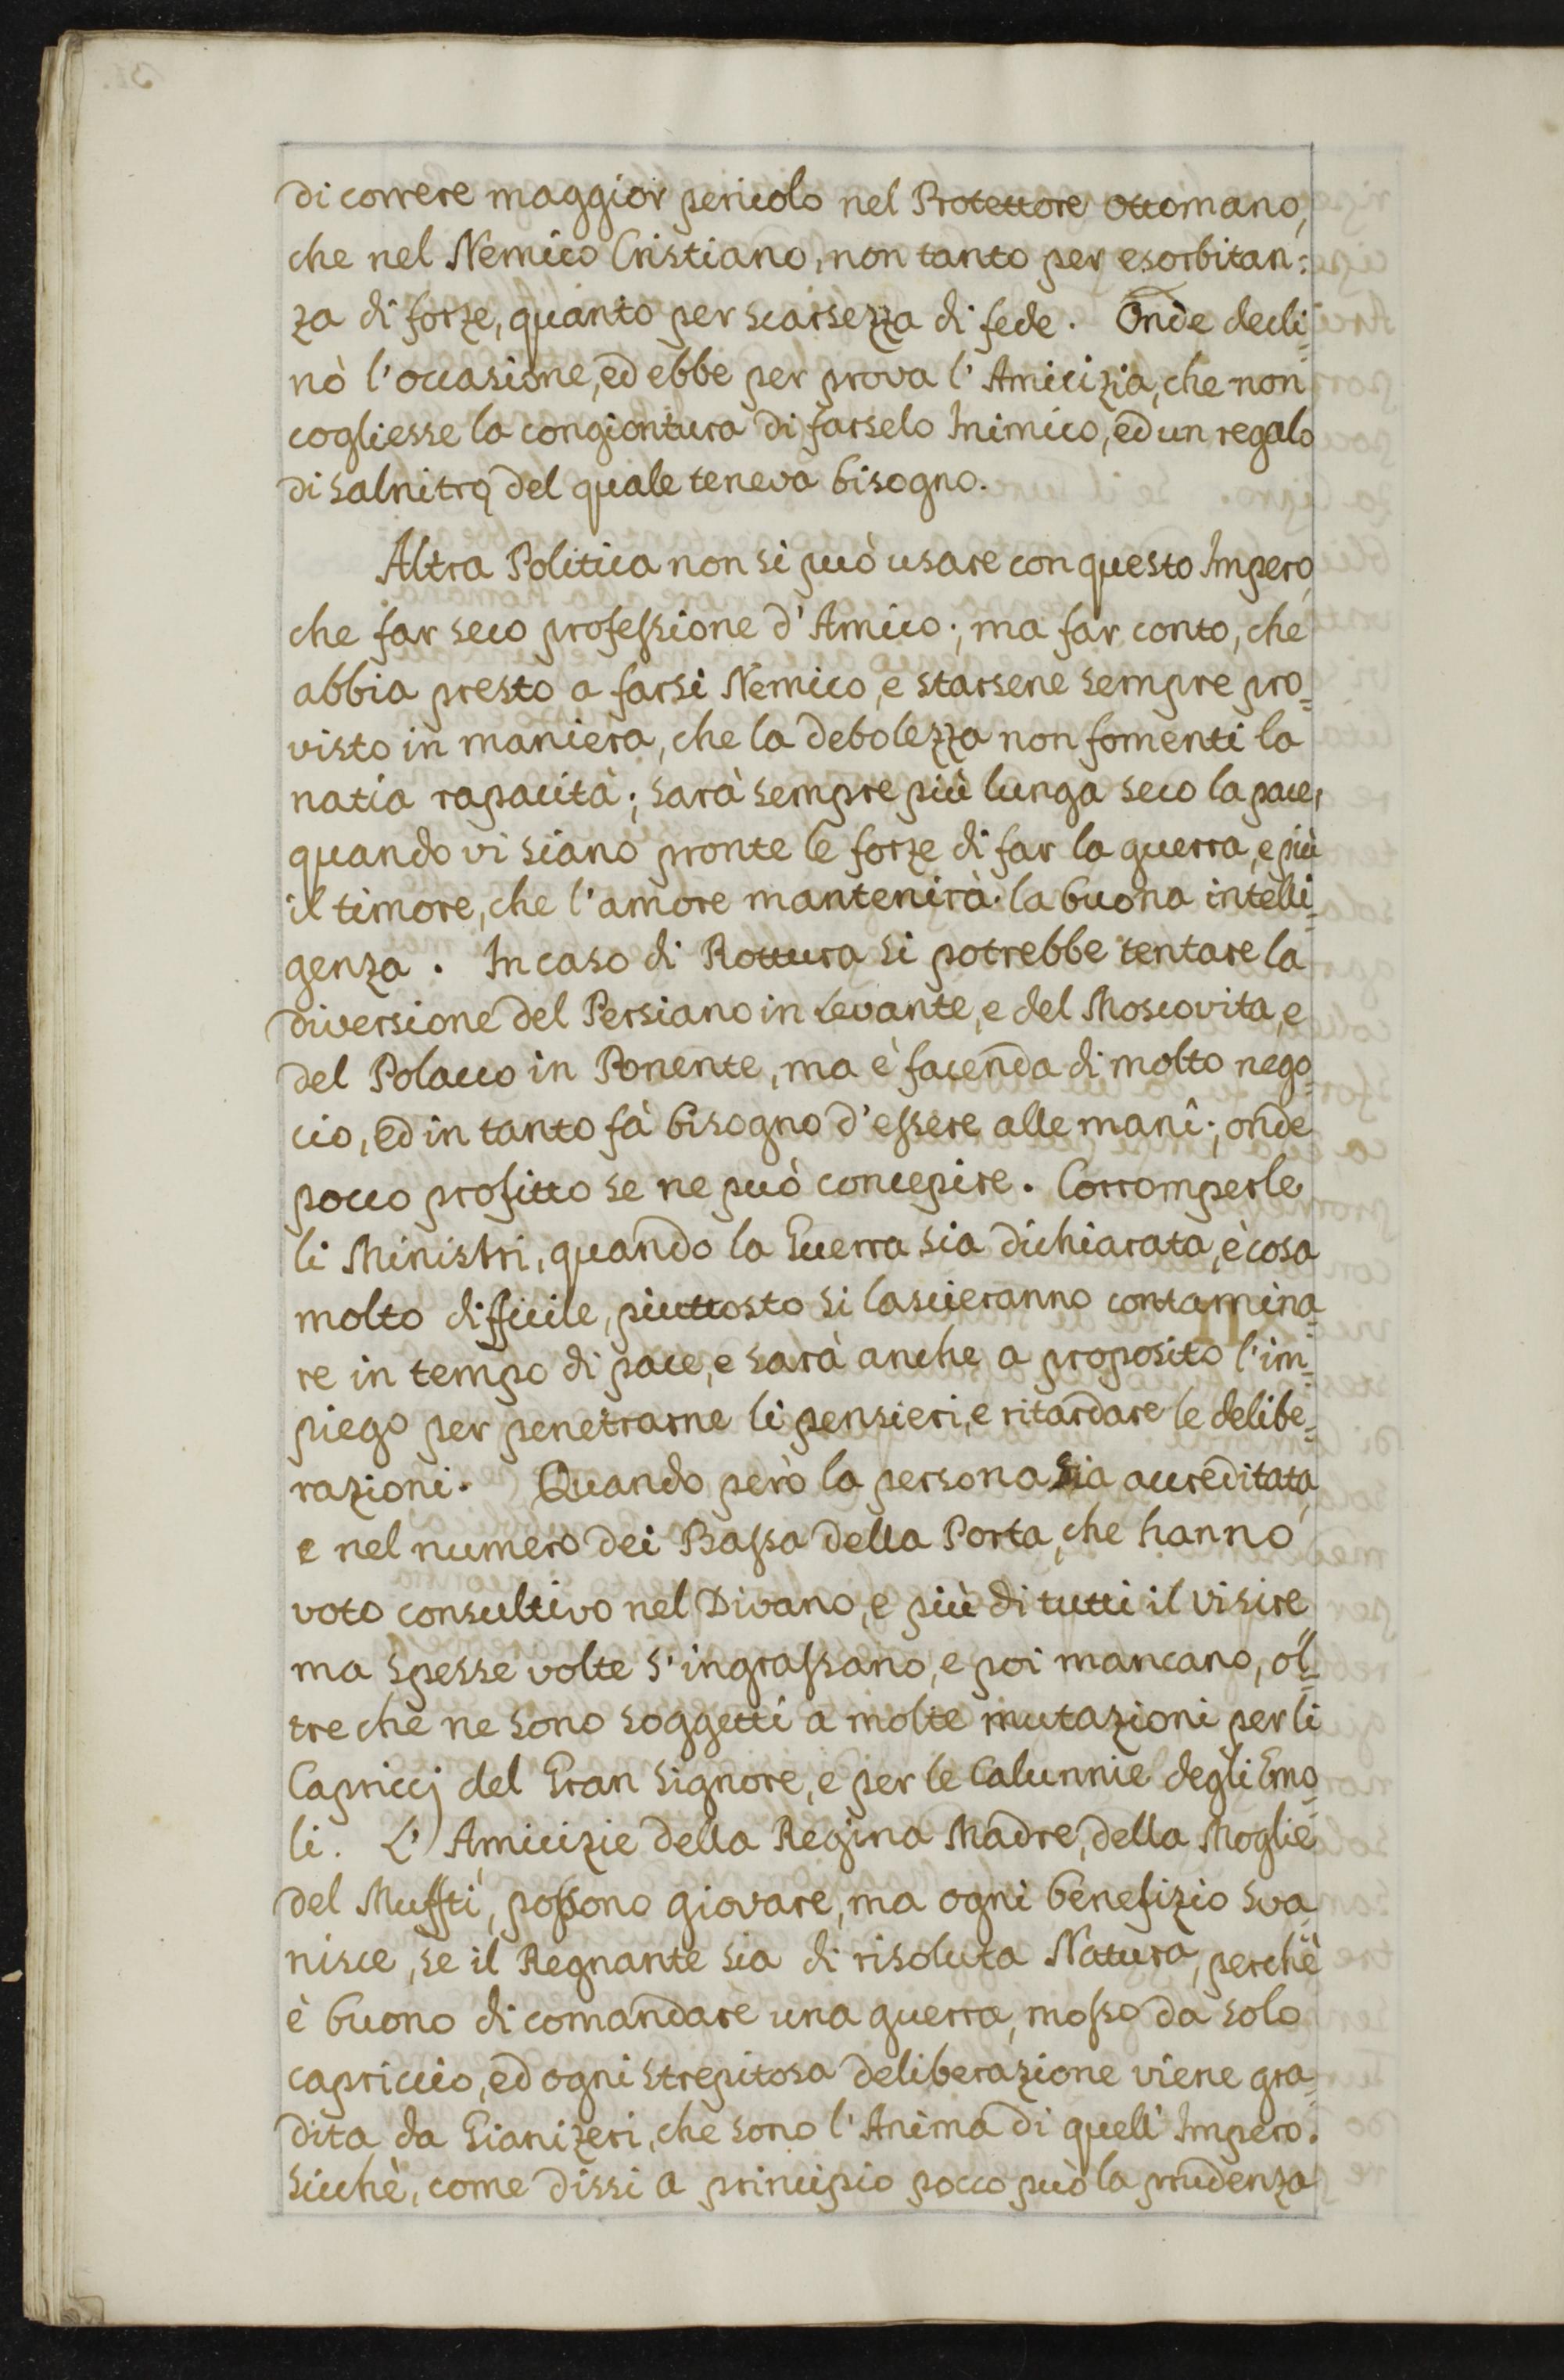 di correre maggior pericolo nel Protettore Ottomano,
che nel Nemico Cristiano, non tanto per esorbitan:
za di forze, quanto per scarsezza di fede. Onde decli=
nò l'occasione, ed ebbe per prova l'Amicizia, che non
cogliesse la congiontura di farselo Inimico, ed un regalo
di salnitro, del quale teneva bisogno.
Altra Politica non si può usare con questo Impero,
che far seco profeſsione d'Amico; ma far conto, che
abbia presto a farsi Nemico, e starsene sempre pro=
visto in maniera, che la debolezza non fomenti la
natia rapacità; sarà sempre più lunga seco la pace,
quando vi siano pronte le forze di far la guerra, e più
il timore, che l'amore mantenirà la buona intelli=
genza. In caso di Rottura si potrebbe tentare la
diversione del Persiano in Levante, e del Moscovita, e
del Polacco in Ponente, ma è facenda di molto nego=
cio, ed in tanto fà bisogno d'eſsere alle mani; onde
pocco profitto se ne può concepire. Corromperle
li Ministri, quando la Guerra sia dichiarata, è cosa
molto difficile, piuttosto si lascieranno contamina=
re in tempo di pace, e sarà anche a proposito l'im=
piego per penetrarne li pensieri, e ritardare le delibe=
razioni. Quando però la persona sia accreditata,
e nel numero dei Baſsa della Porta, che hanno
voto consultivo nel Divano, e più di tutti il Visire
ma spesse volte s'ingraſsano, e poi mancano, ol=
tre che ne sono soggetti a molte mutazioni per li
Capriccj del Gran Signore, e per le Calunnie degli Emo=
li. L'Amicizie della Regina Madre, della Moglie
del Muffti, poſsono giovare, ma ogni benefizio sva=
nisce, se il Regnante sia di risoluta Natura, perchè
è buono di comandare una guerra, moſso da solo
capriccio, ed ogni strepitosa deliberazione viene gra=
dita da Gianizeri, che sono l'Anima di quell'Impero.
Sicchè, come dissi a principio pocco può la prudenza